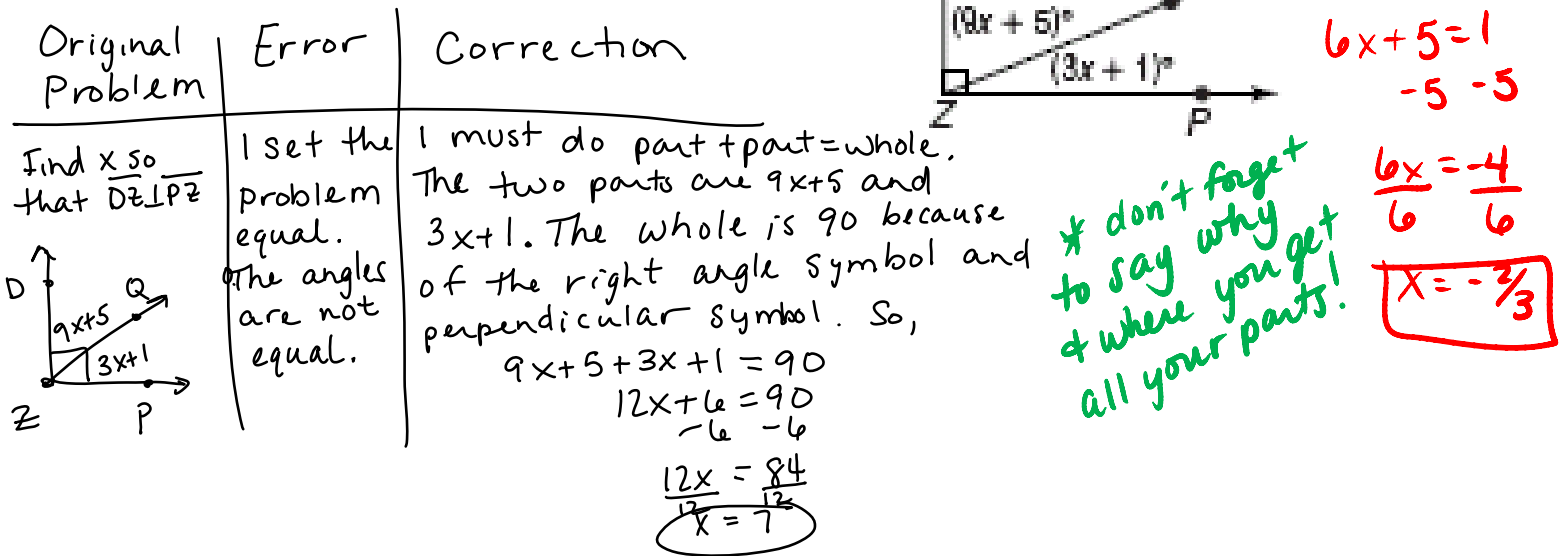 Original
Problem
Error
Correction
Find x so
that DZ⊥PZ
D
Q
9x+5
3x+1
Z
P
I set the
problem
equal.
The angles
are not
equal.
I must do part + part = whole.
The two parts are 9x+5 and
3x+1. The whole is 90 because
of the right angle symbol and
perpendicular symbol. So,
9x+5+3x+1 = 90
12x+6 = 90
-6 -6
12x = 84
12 12
x = 7
(9x + 5)°
(3x + 1)°
Z
P
* don't forget
to say why
& where you get
all your parts!
6x+5=1
-5 -5
6x = -4
6 6
x = -2/3